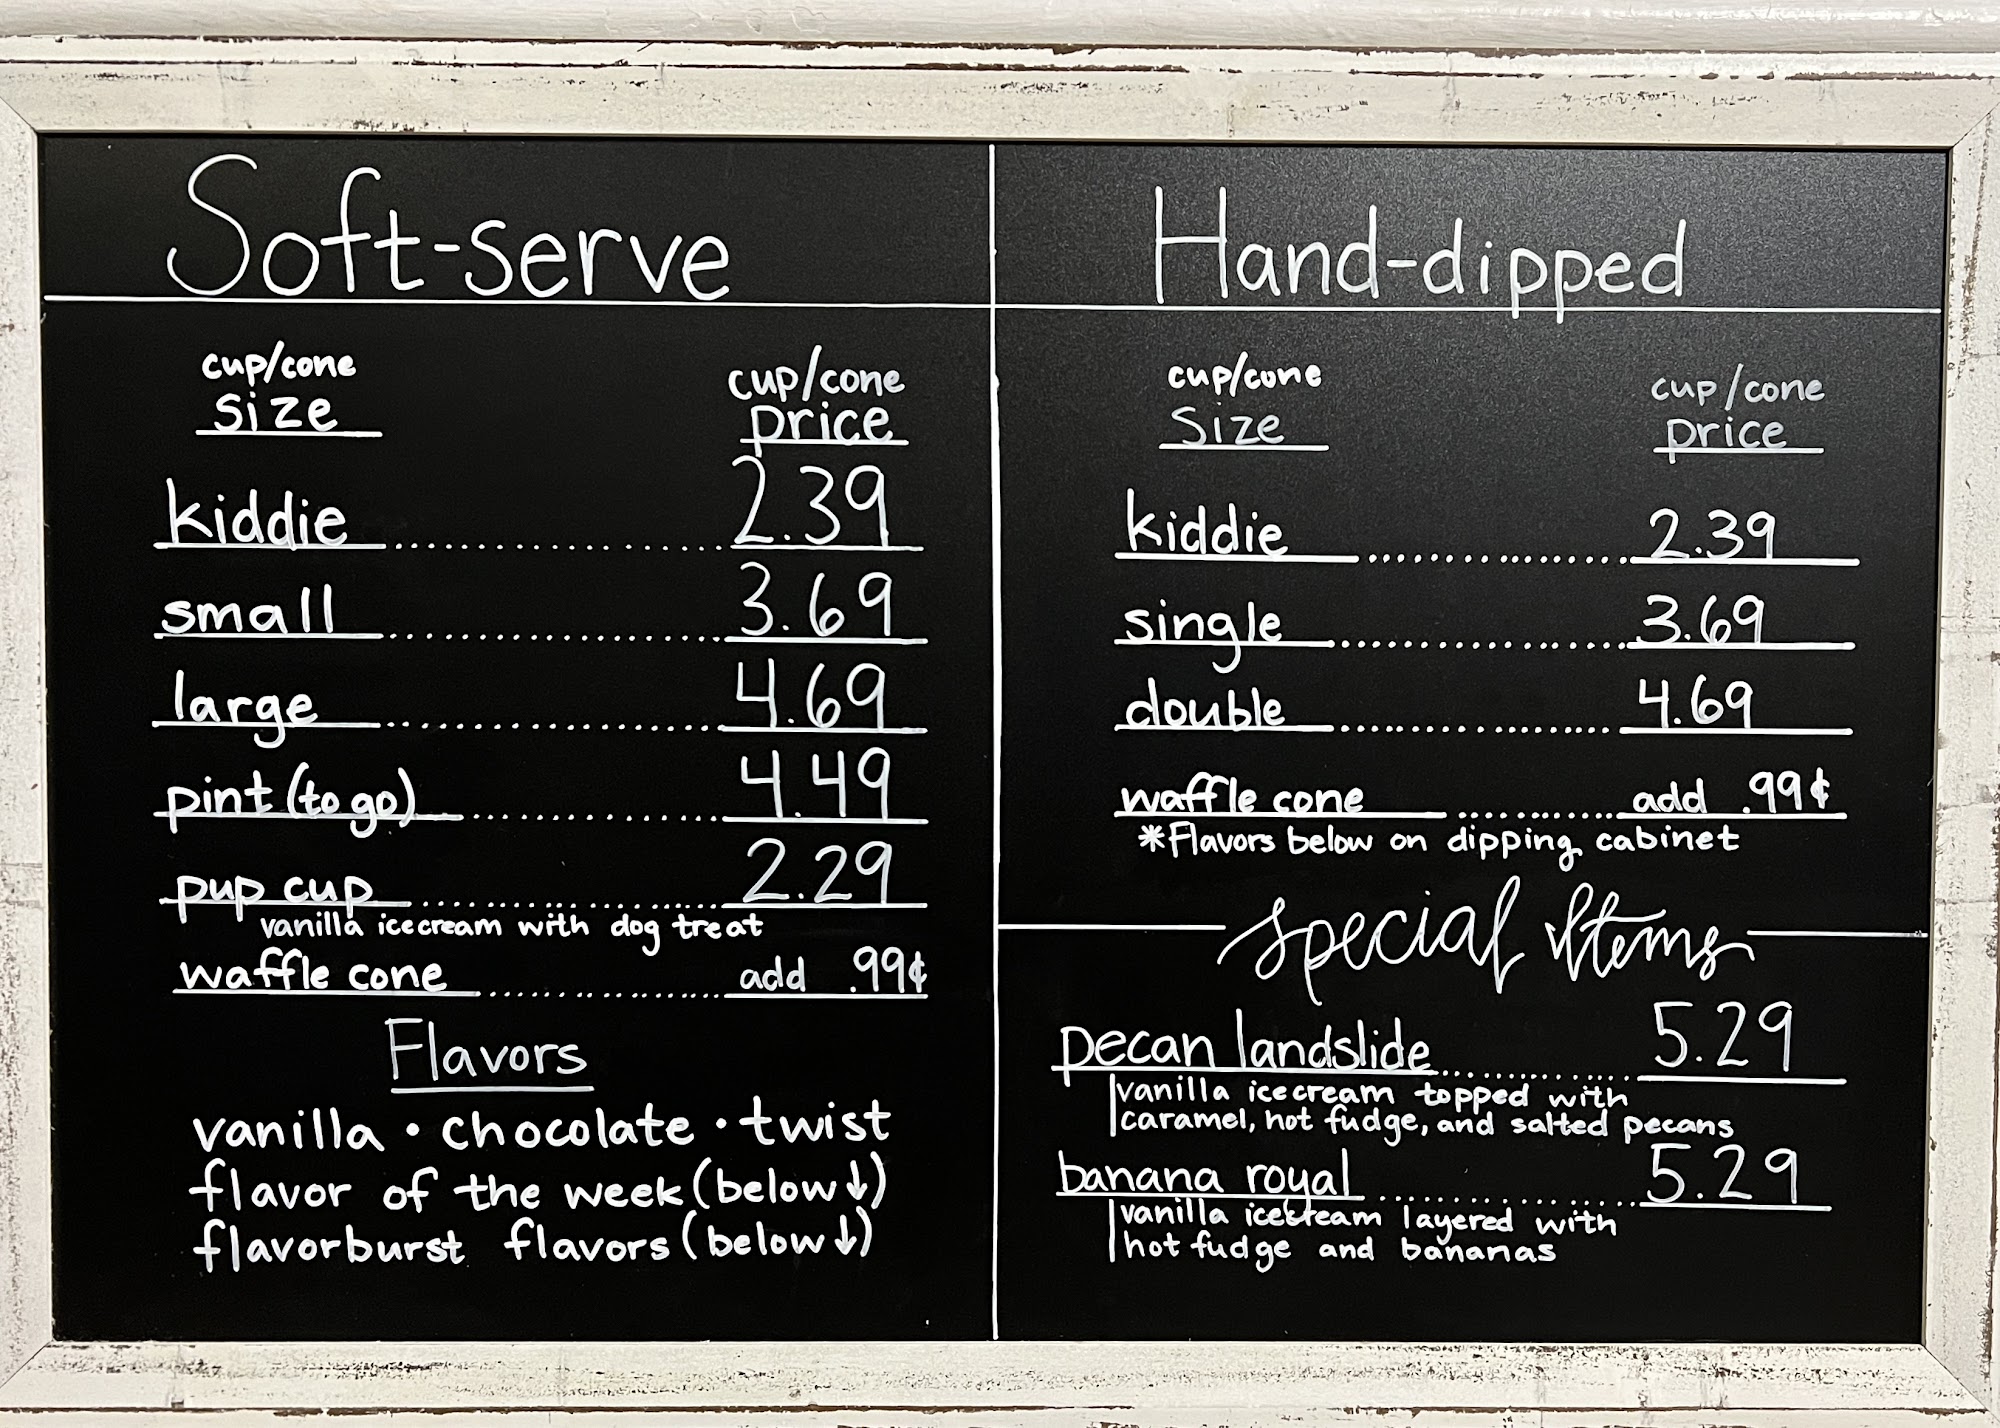 Soft-serve
cup/cone size cup/cone price
kiddie 2.39
small 3.69
large 4.69
pint (to go) 4.49
pup cup 2.29
vanilla icecream with dog treat
waffle cone add .99¢
Flavors
vanilla • chocolate • twist
flavor of the week (below ↓)
flavorburst flavors (below ↓)
Hand-dipped
cup/cone size cup/cone price
kiddie 2.39
single 3.69
double 4.69
waffle cone add .99¢
*Flavors below on dipping cabinet
Special Items
pecan landslide 5.29
vanilla icecream topped with
caramel, hot fudge, and salted pecans
banana royal 5.29
vanilla icecream layered with
hot fudge and bananas